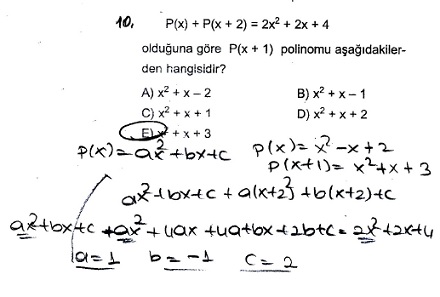 10. P(x) + P(x + 2) = 2x² + 2x + 4
olduğuna göre P(x + 1) polinomu aşağıdakiler-
den hangisidir?
A) x² + x – 2 B) x² + x – 1
C) x² + x + 1 D) x² + x + 2
E) x² + x + 3
P(x) = ax² + bx + c P(x) = x² - x + 2
P(x+1) = x² + x + 3
ax² + bx + c + a(x+2)² + b(x+2) + c
ax² + bx + c + ax² + 4ax + 4a + bx + 2b + c = 2x² + 2x + 4
a = 1 b = -1 c = 2